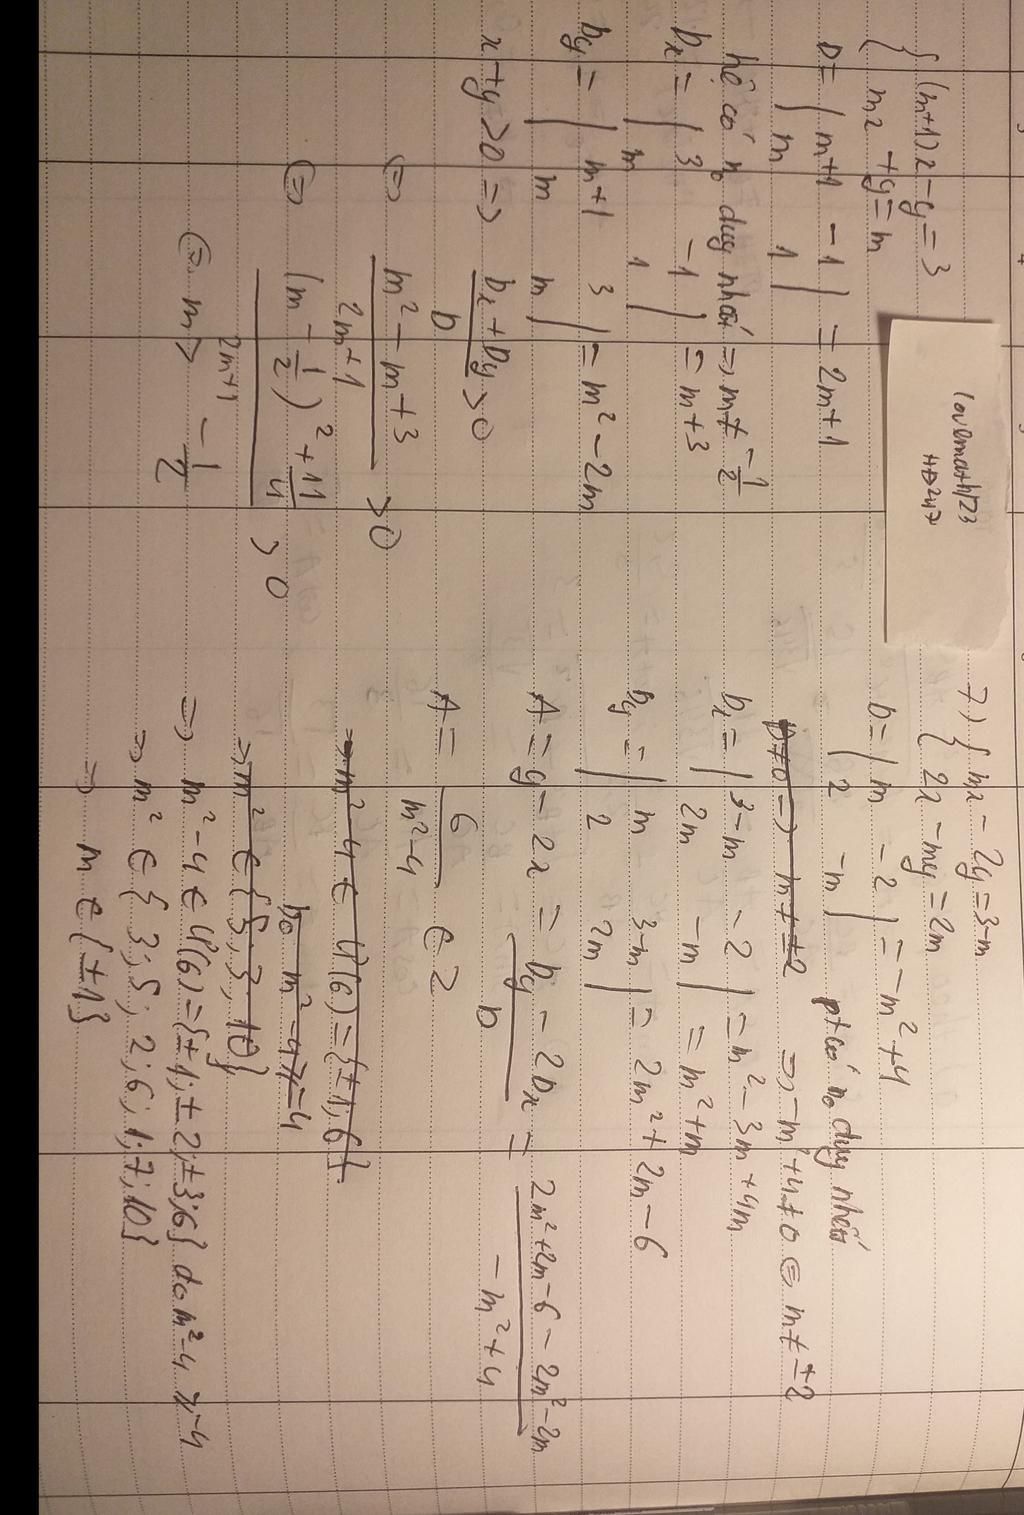 { (m+1)x - y = 3
mx + y = m
D = | m+1 -1 |
| m 1 | = 2m+1
hệ có n₀ duy nhất => m ≠ -1/2
Dx = | 3 -1 |
| m 1 | = m+3
Dy = | m+1 3 |
| m m | = m² - 2m
x + y > 0 => (Dx + Dy)/D > 0
<=> (m² - m + 3)/(2m+1) > 0
<=> ((m - 1/2)² + 11/4)/(2m+1) > 0
<=> m > -1/2
lovemath123
HĐ247
7) { mx - 2y = 3-m
2x - my = 2m
D = | m -2 |
| 2 -m | = -m² + 4
pt có n₀ duy nhất
D ≠ 0 => m ≠ ±2 => -m² + 4 ≠ 0 <=> m ≠ ±2
Dx = | 3-m -2 |
| 2m -m | = m² - 3m + 4m
= m² + m
Dy = | m 3-m |
| 2 2m | = 2m² + 2m - 6
A = y - 2x = (Dy - 2Dx)/D = (2m² + 2m - 6 - 2m² - 2m)/(-m² + 4)
A = 6/(m² - 4) ∈ Z
=> m² - 4 ∈ Ư(6) = {±1; 6}
m² - 4 ≥ -4
=> m² ∈ {5; 3; 10}
=> m² - 4 ∈ Ư(6) = {±1; ±2; ±3; 6} do m² - 4 ≥ -4
=> m² ∈ {3; 5; 2; 6; 1; 7; 10}
=> m ∈ {±1}